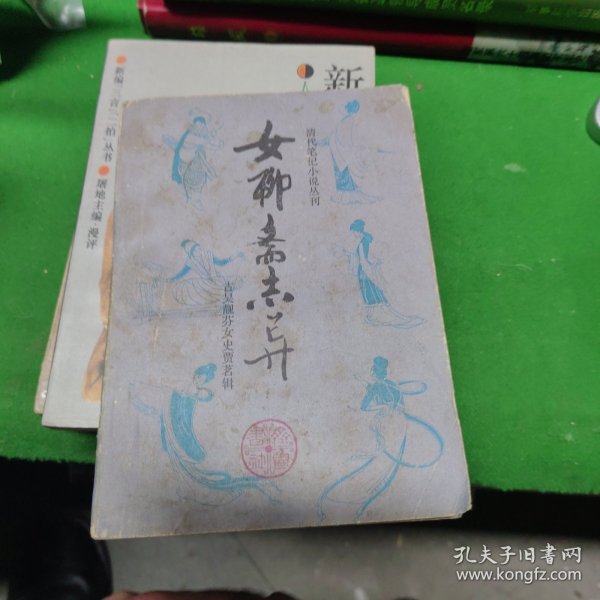 女聊斋志异
清代笔记小说丛刊
古吴靓芬女史贾茗辑
新
新编“三言二拍”丛书
屠地主编 漫评
孔夫子旧书网
www.kongfz.com